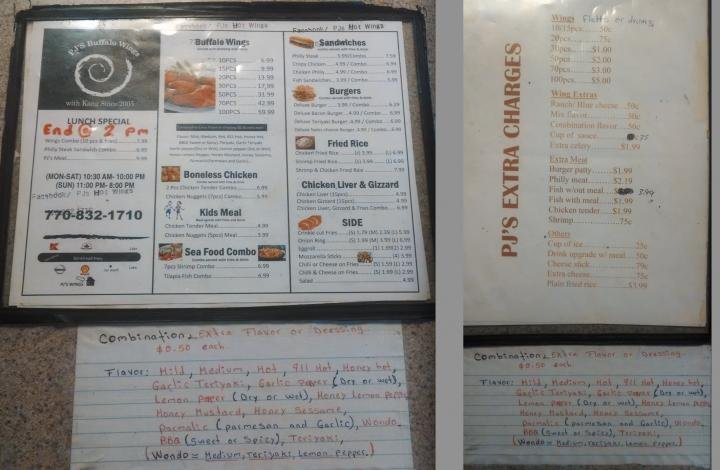 Facebook/ PJs Hot Wings
PJ'S Buffalo Wings
with Kang Since 2005
LUNCH SPECIAL
End @ 2 pm
Wings Combo (10 pcs & fries)
Philly Steak Sandwich Combo
PJ's Meal
(MON-SAT) 10:30 AM- 10:00 PM
(SUN) 11:00 PM- 8:00 PM
Facebook/ PJs Hot Wings
770-832-1710
PJ'S WINGS
Buffalo Wings
10PCS 6.99
15PCS 9.99
20PCS 13.99
30PCS 17.99
50PCS 31.99
70PCS 42.99
100PCS 59.99
Boneless Chicken
2 Pcs Chicken Tender Combo 6.99
Chicken Nuggets (7pcs) Combo 5.99
Kids Meal
Chicken Tender Meal 4.99
Chicken Nuggets (5pcs) Meal 3.99
Sea Food Combo
7pcs Shrimp Combo 6.99
Tilapia Fish Combo 6.99
Facebook/ PJs Hot Wings
Sandwiches
Philly Steak 5.99/Combo 7.99
Crispy Chicken 4.99 / Combo 6.99
Chicken Philly 4.99 / Combo 6.99
Fish Sandwiches 3.99 / Combo 6.99
Burgers
Deluxe Burger 3.99 / Combo 6.29
Deluxe Bacon Burger 4.99 / Combo 6.99
Deluxe Teriyaki Burger 4.99 / Combo 6.99
Deluxe Swiss cheese Burger 4.99 / Combo 6.99
Fried Rice
Chicken Fried Rice (s) 3.99 (L) 6.99
Shrimp Fried Rice (s) 3.99 (L) 6.99
Shrimp & Chicken Fried Rice 7.99
Chicken Liver & Gizzard
Chicken Liver (15pcs) 4.99
Chicken Gizzard (15pcs) 4.99
Chicken Liver, Gizzard & Fries Combo 6.99
SIDE
Crinkle cut Fries (S) 1.79 (M) 2.39 (L) 5.99
Onion Ring (S) 1.99 (M) 3.99 (L) 6.99
Eggroll (1) 1.99(2) 2.99
Mozzarella Sticks
Chilli or Cheese on Fries (S) 1.59 (L) 2.99
Chilli & Cheese on Fries (S) 1.99 (L) 4.99
Salad 4.99
Combination, Extra Flavor or Dressing
$0.50 each
Flavor: Mild, Medium, Hot, 911 Hot, Honey hot,
Garlic Teriyaki, Garlic paper (Dry or wet),
Lemon paper (Dry or wet), Honey Lemon Pepper,
Honey Mustard, Honey Sessame,
Parmatic (parmesan and Garlic), Wondo,
BBQ (sweet or Spicy), Teriyaki,
(Wondo = Medium, Teriyaki, Lemon Pepper.)
PJ'S EXTRA CHARGES
Wings Flatts or drums
10/15pcs 50c
20pcs 75c
30pcs $1.00
50pcs $2.00
70pcs $3.00
100pcs $5.00
Wing Extras
Ranch/ Blue cheese 50c
Mix flavor 50c
Combination flavor 50c
Cup of sauce .75
Extra celery $1.99
Extra Meat
Burger patty $1.99
Philly meat $2.19
Fish w/out meal 3.99
Fish with meal $1.99
Chicken tender $1.99
Shrimp 75c
Others
Cup of ice 25c
Drink upgrade w/ meal 50c
Cheese stick 79c
Extra cheese 75c
Plain fried rice $3.99
Combination, Extra Flavor or Dressing
$0.50 each
Flavor: Mild, Medium, Hot, 911 Hot, Honey hot,
Garlic Teriyaki, Garlic paper (Dry or wet),
Lemon paper (Dry or wet), Honey Lemon Pepper,
Honey Mustard, Honey Sessame,
Parmatic (parmesan and Garlic), Wondo,
BBQ (sweet or Spicy), Teriyaki,
(Wondo = Medium, Teriyaki, Lemon Pepper.)